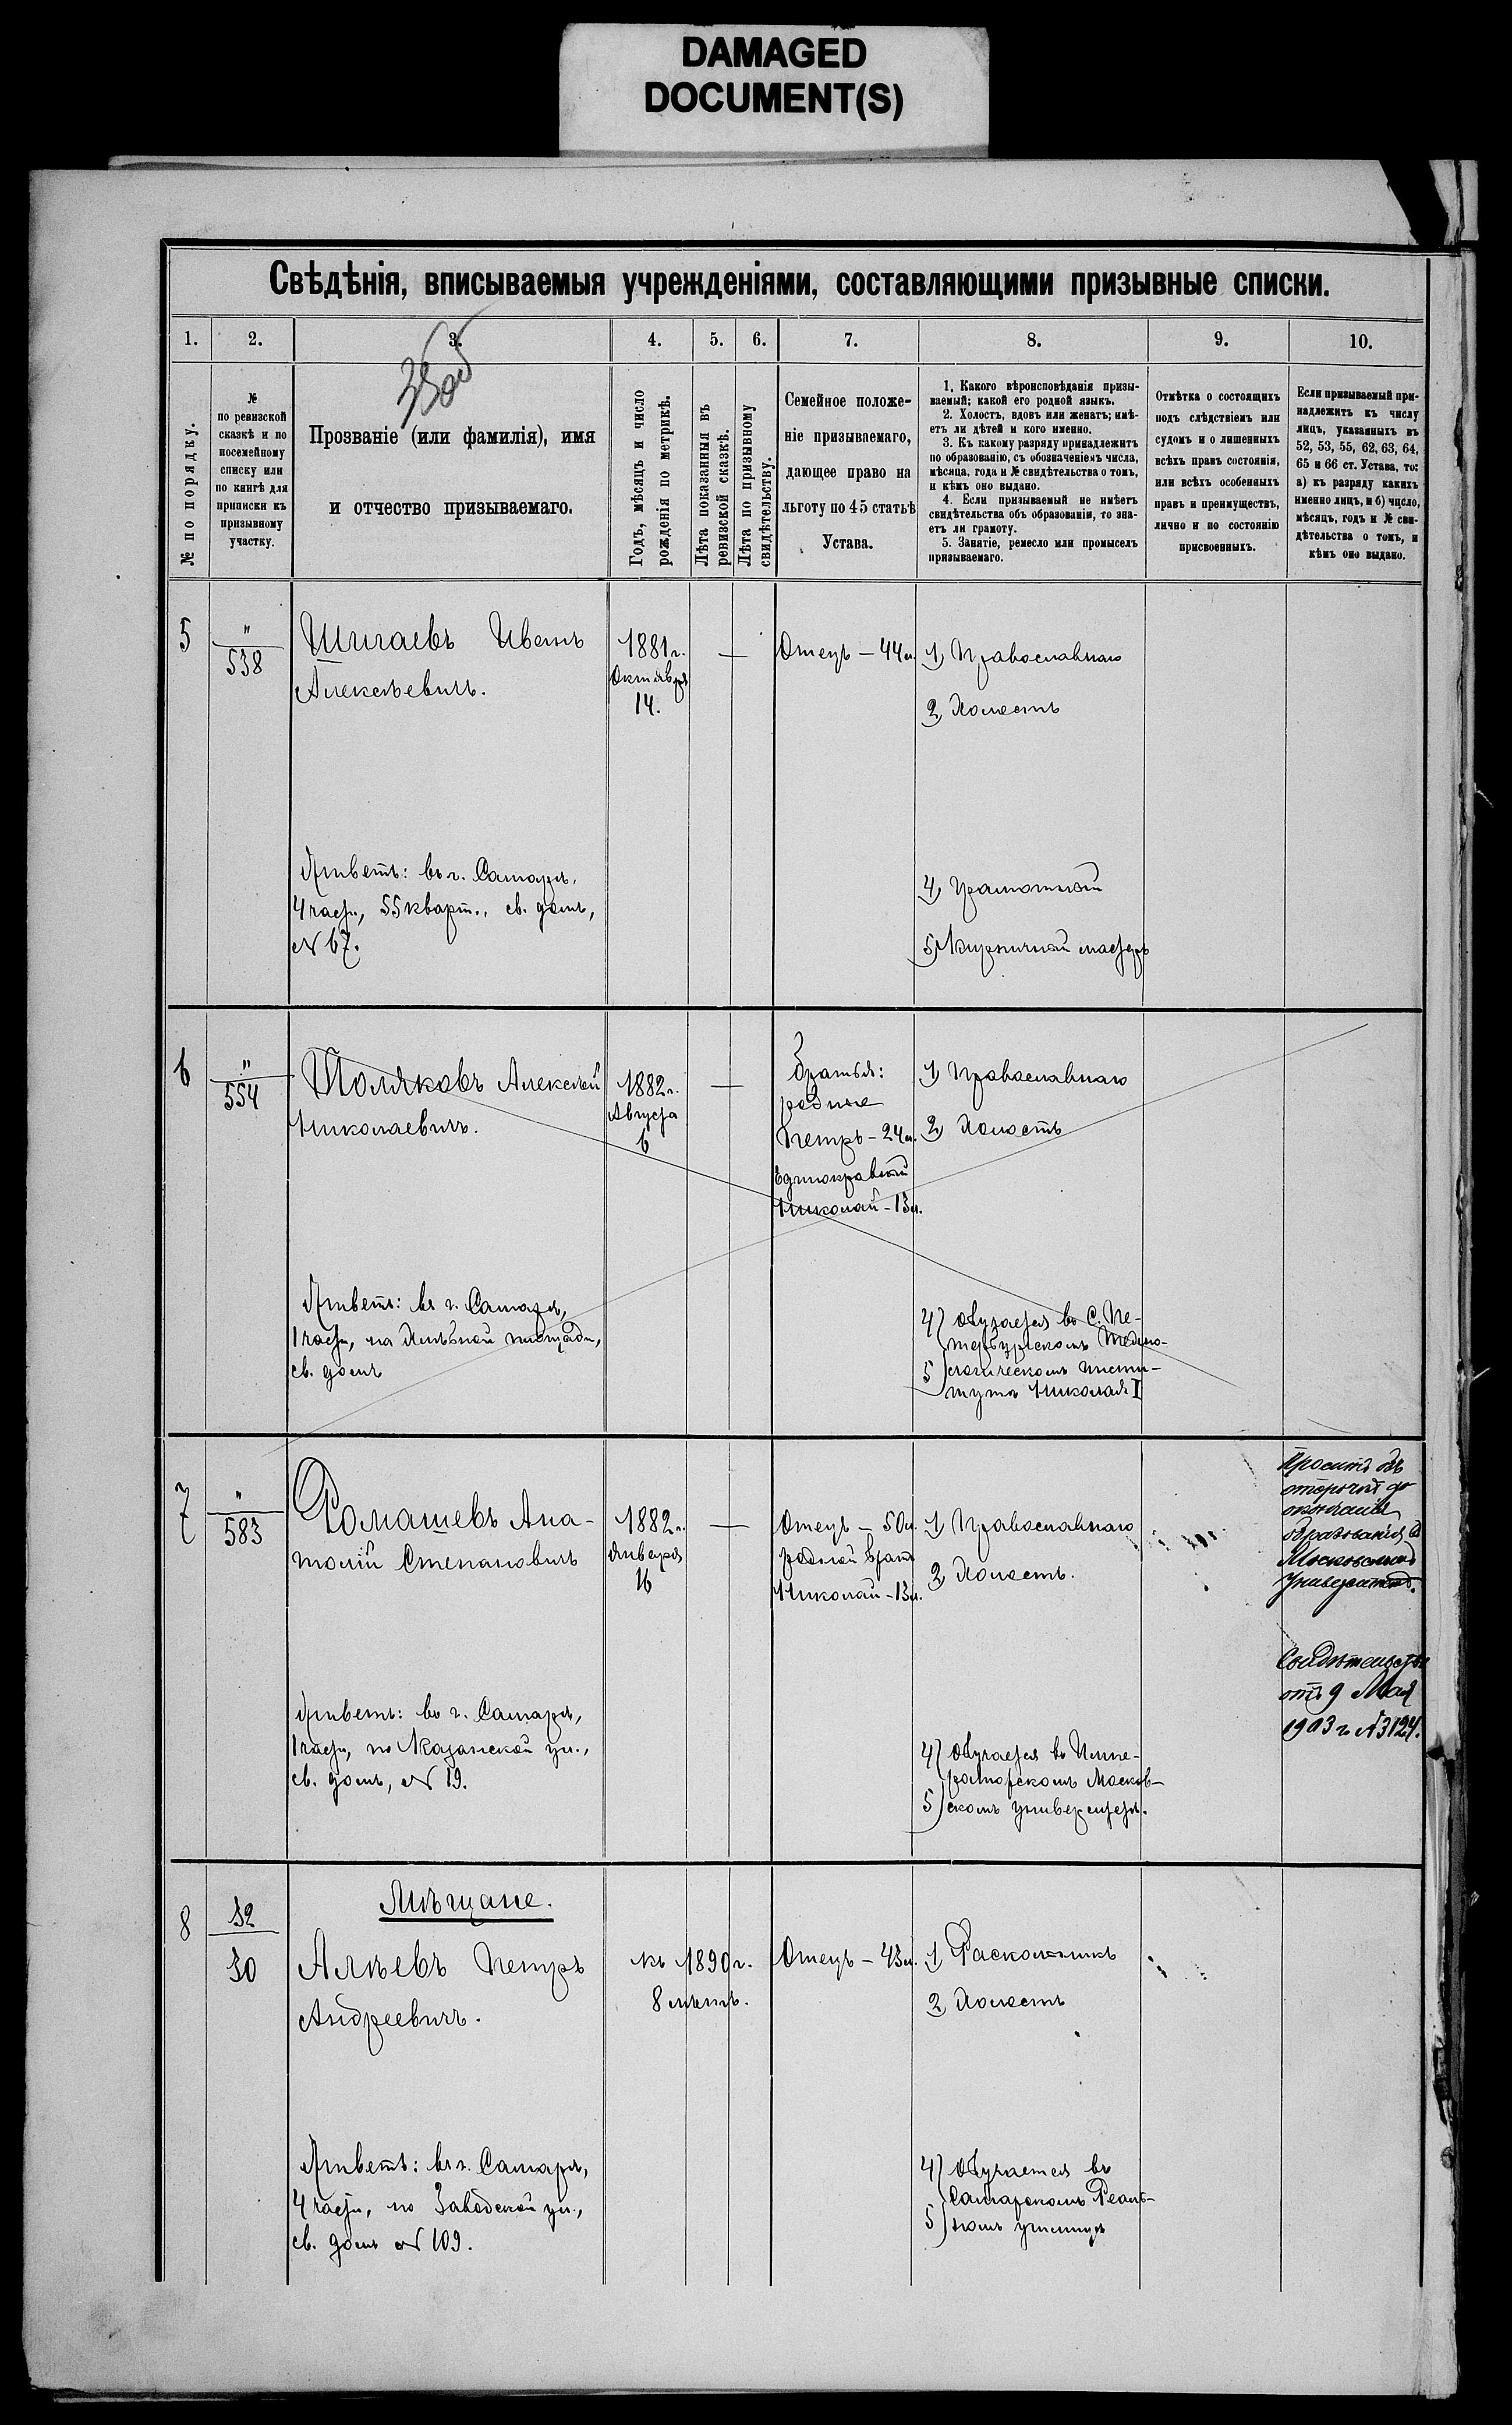 DAMAGED
DOCUMENT(S)
Свѣдѣнія, вписываемыя учрежденіями, составляющими призывные списки.
1. 2. 3. 4. 5. 6. 7. 8. 9. 10.
№ по порядку.
№
по ревизской
сказкѣ и по
посемейному
списку или
по книгѣ для
приписки къ
призывному
участку.
Прозваніе (или фамилія), имя
и отчество призываемаго.
Годъ, мѣсяцъ и число
рожденія по метрикѣ.
Лѣта показанныя въ
ревизской сказкѣ.
Лѣта по призывному
свидѣтельству.
Семейное положе-
ніе призываемаго,
дающее право на
льготу по 45 статьѣ
Устава.
1. Какого вѣроисповѣданія призы-
ваемый; какой его родной языкъ.
2. Холостъ, вдовъ или женатъ; имѣ-
етъ ли дѣтей и кого именно.
3. Къ какому разряду принадлежитъ
по образованію, съ обозначеніемъ числа,
мѣсяца, года и № свидѣтельства о томъ,
и кѣмъ оно выдано.
4. Если призываемый не имѣетъ
свидѣтельства объ образованіи, то зна-
етъ ли грамоту.
5. Занятіе, ремесло или промыселъ
призываемаго.
Отмѣтка о состоящихъ
подъ слѣдствіемъ или
судомъ и о лишенныхъ
всѣхъ правъ состоянія,
или всѣхъ особенныхъ
правъ и преимуществъ,
лично и по состоянію
присвоенныхъ.
Если призываемый при-
надлежитъ къ числу
лицъ, указанныхъ въ
52, 53, 55, 62, 63, 64,
65 и 66 ст. Устава, то:
а) къ разряду какихъ
именно лицъ, и б) число,
мѣсяцъ, годъ и № сви-
дѣтельства о томъ, и
кѣмъ оно выдано.
5
"
538
Шигаевъ Иванъ
Алексѣевичъ.
1881 г.
Октября
14.
Отецъ – 44 л.
1) Православнаго
2) Холостъ
Живетъ: въ г. Самарѣ,
4 части, 55 кварт., св. домъ,
№ 67.
4) Грамотный
5) Кирпичный мастеръ
6
"
554
Поляковъ Алексѣй
Николаевичъ.
1882 г.
Августа
6
Братья:
родные
Петръ – 24 л.
Единокровный
Николай – 13 л.
1) Православнаго
2) Холостъ
Живетъ: въ г. Самарѣ,
1 части, на Хлѣбной площади,
св. домъ
4) Обучается въ С. Пе-
тербургскомъ Техно-
5) логическомъ Инсти-
тутѣ Николая I
7
"
583
Ромашевъ Ана-
толій Степановичъ
1882 г.
Января
16
Отецъ – 50 л.
родной братъ
Николай – 13 л.
1) Православнаго
2) Холостъ.
Проситъ объ
отсрочкѣ до
окончанія
образованія въ
Московскомъ
Университетѣ.
Свидѣтельство
отъ 9 Мая
1903 г. № 3124.
Живетъ: въ г. Самарѣ,
1 части, по Казанской ул.,
св. домъ, № 19.
4) Обучается въ Импе-
раторскомъ Москов-
5) скомъ университетѣ.
8
32
30
Мѣщане.
Алѣевъ Петръ
Андреевичъ.
къ 1890 г.
8 лѣтъ.
Отецъ – 43 л.
1) Раскольникъ
2) Холостъ
Живетъ: въ г. Самарѣ,
4 части, по Заводской ул.,
св. домъ № 109.
4) Обучается въ
Самарскомъ Реаль-
5) номъ училищѣ